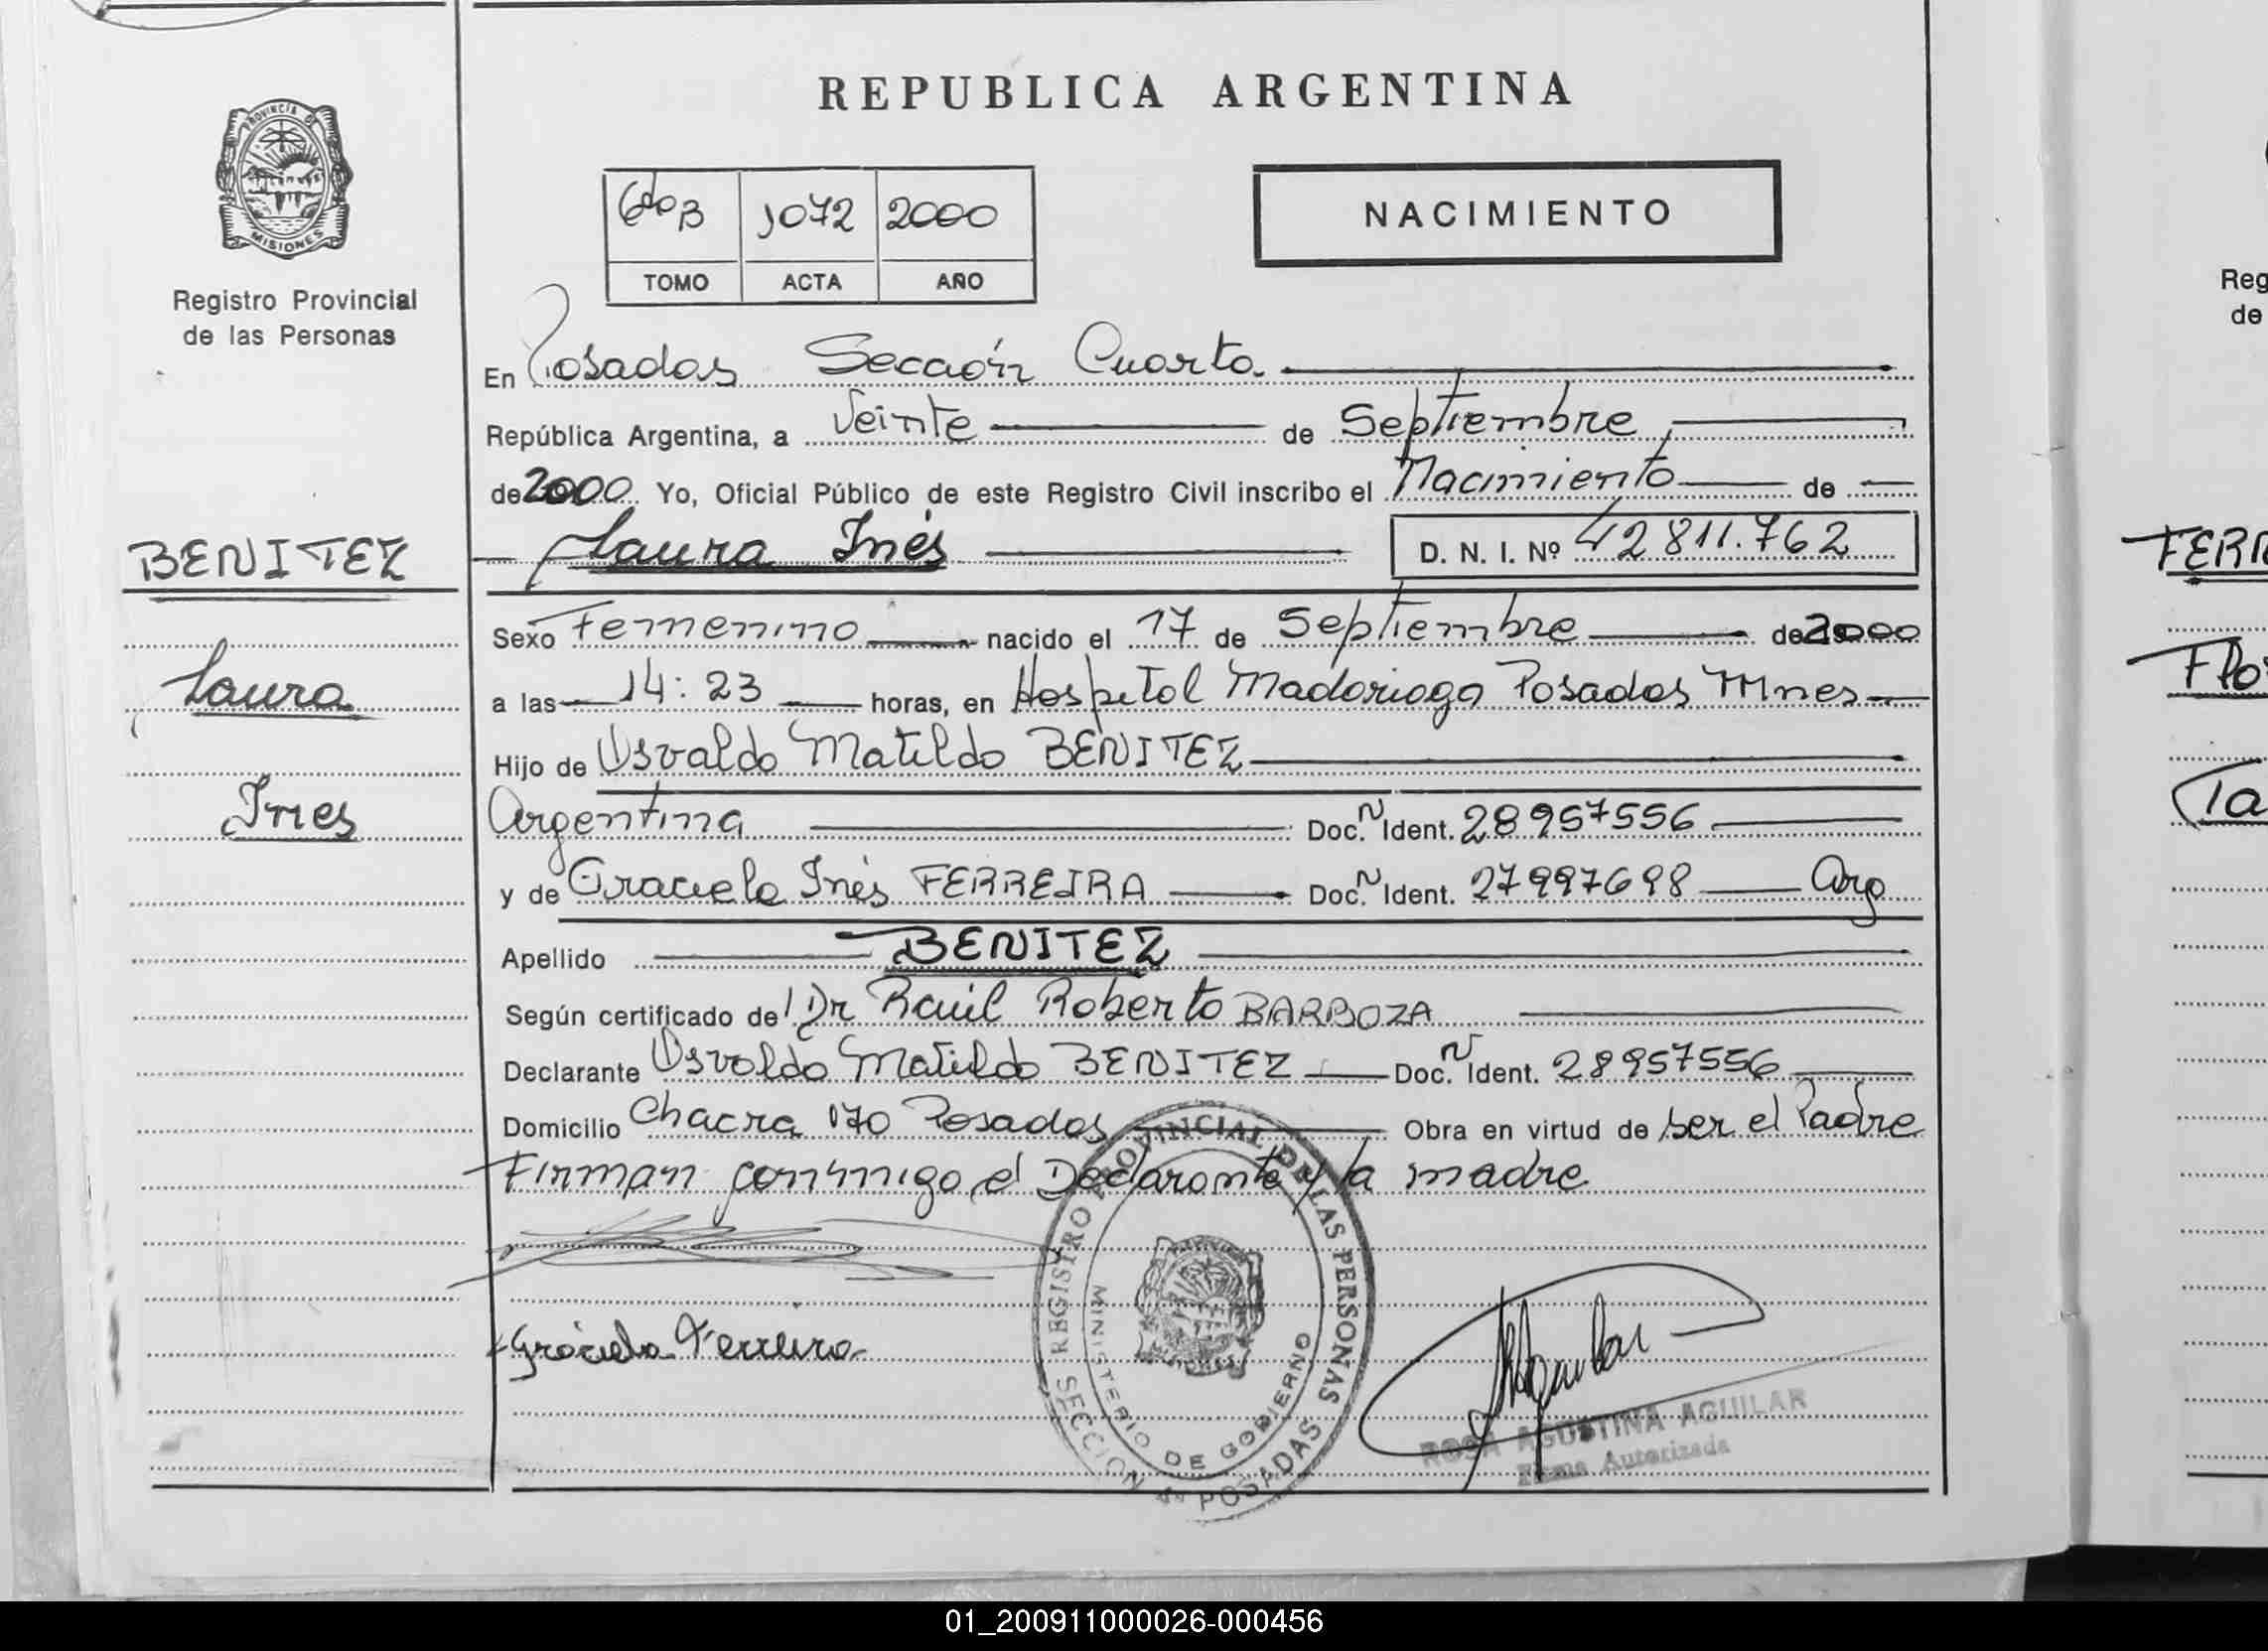 REPUBLICA ARGENTINA
PROVINCIA DE
MISIONES
Registro Provincial
de las Personas
1072 2000
TOMO ACTA AÑO
NACIMIENTO
En Posadas Sección Cuarta
República Argentina, a Veinte de Septiembre
de 2000 Yo, Oficial Público de este Registro Civil inscribo el Nacimiento de
Laura Inés D. N. I. Nº 42811.762
BENITEZ
Laura
Ines
Sexo Femenino nacido el 17 de Septiembre de 2000
a las 14:23 horas, en Hospital Madariaga Posadas Mnes
Hijo de Osvaldo Matildo BENITEZ
Argentina Doc. N Ident. 28957556
y de Graciela Inés FERREIRA Doc. N Ident. 27997698 Arg
Apellido BENITEZ
Según certificado del Dr Raúl Roberto BARBOZA
Declarante Osvaldo Matildo BENITEZ Doc. N Ident. 28957556
Domicilio Chacra 170 Posadas Obra en virtud de ser el Padre
Firman conmigo el Declarante y la madre
REGISTRO PROVINCIAL DE LAS PERSONAS
MINISTERIO DE GOBIERNO
SECCION 4ª POSADAS
Graciela Ferreira
ROSA AGUSTINA AGUILAR
Firma Autorizada
Reg
de
FERR
Flo
Ta
01_200911000026-000456